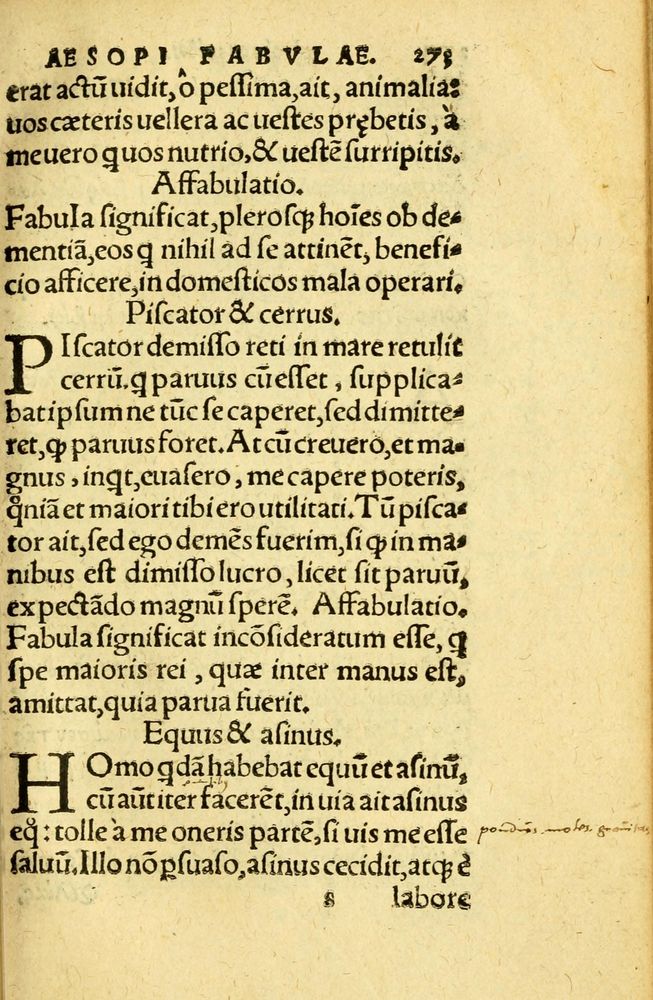 AESOPI FABVLAE. 273
erat actū uidit, ô pessima, ait, animalia:
uos cæteris uellera ac uestes prębetis, à
me uero quos nutrio, & uestē surripitis.
Affabulatio.
Fabula significat, plerosq; hoīes ob de-
mentiā, eos q̄ nihil ad se attinēt, benefi-
cio afficere, in domesticos mala operari.
Piscator & cerrus.
PIscator demisso reti in mare retulit
cerrū. q̄ paruus cū esset, supplica-
bat ipsum ne tūc se caperet, sed dimitte-
ret, q̄ paruus foret. At cū creuero, et ma-
gnus, inq̄t, euasero, me capere poteris,
qm̄iā et maiori tibi ero utilitati. Tū pisca-
tor ait, sed ego demēs fuerim, si q̄ in ma-
nibus est dimisso lucro, licet sit paruū,
expectādo magnū sperē. Affabulatio.
Fabula significat incōsideratum esse, q̄
spe maioris rei, quæ inter manus est,
amittat, quia parua fuerit.
Equus & asinus.
HOmo q̄dā habebat equū et asinū,
cū aūt iter facerēt, in uia ait asinus
eq̄: tolle à me oneris partē, si uis me esse
saluū. Illo nō ꝑsuaso, asinus cecidit, atq; ē
s labore